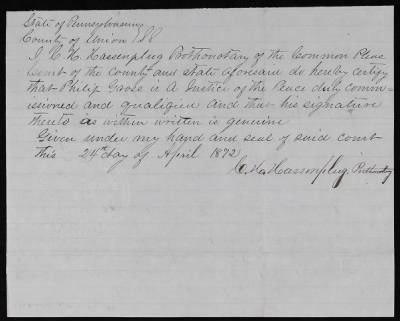 State of Pennsylvania
County of Union SS
I C. H. Hassenplug Prothonotary of the Common Pleas
Court of the County and State aforesaid do hereby certify
that Philip Gross is A Justice of the Peace duly comm-
issioned and qualified and that his signature
thereto as within written is genuine
Given under my hand and seal of said court
this 24th day of April 1872
C. H. Hassenplug Prothonotary